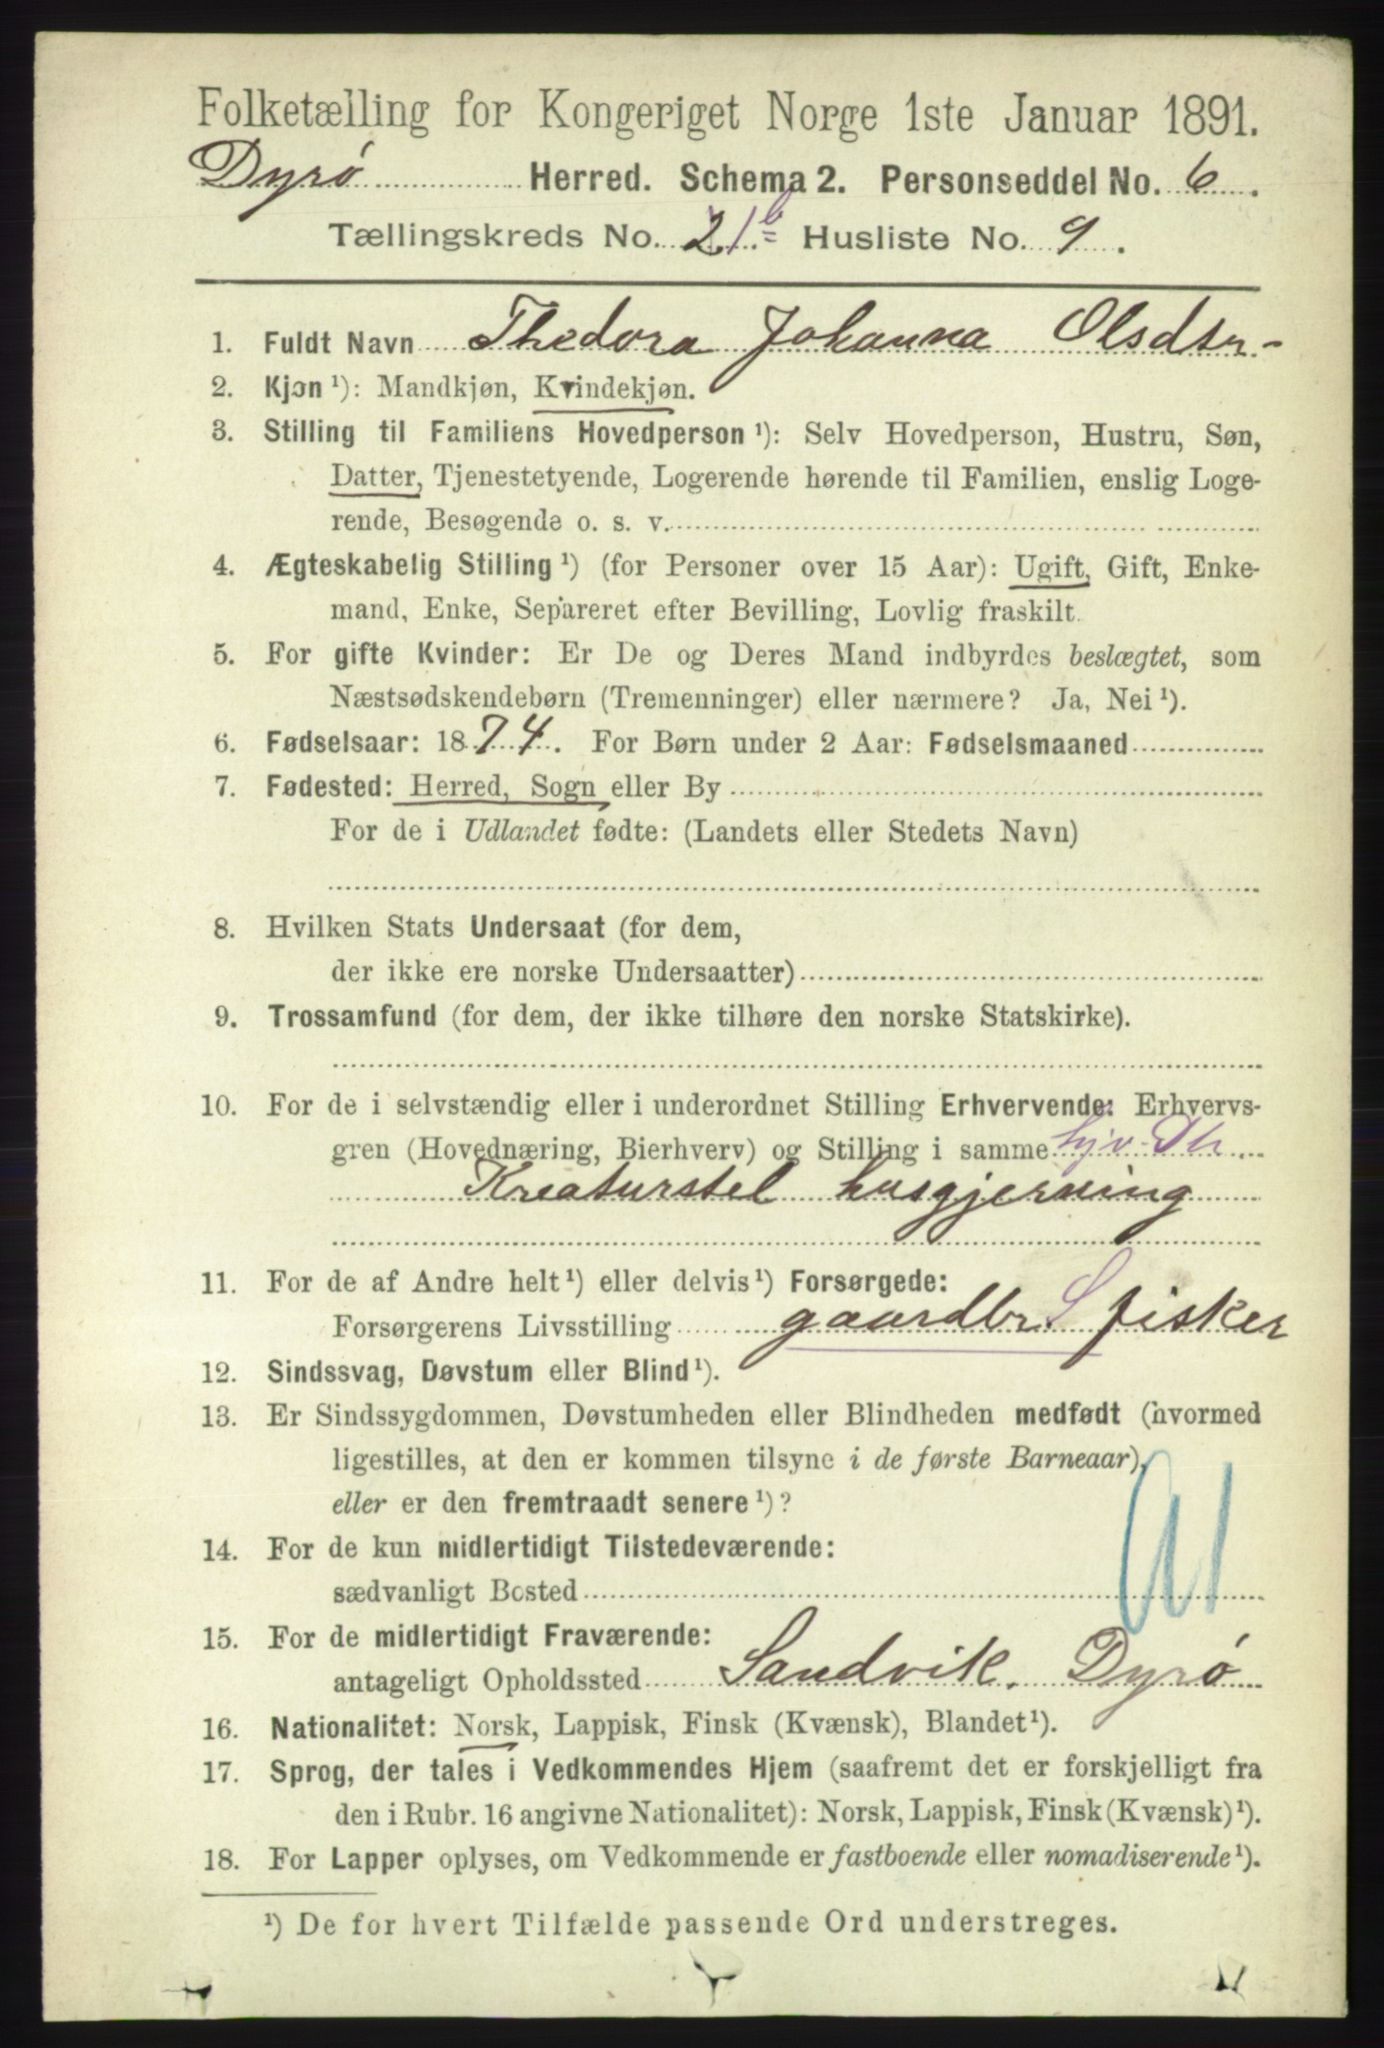 Folketælling for Kongeriget Norge 1ste Januar 1891.
Dyrø Herred. Schema 2. Personseddel No. 6.
Tællingskreds No. 21 b Husliste No. 9.
1. Fuldt Navn Thedora Johanna Olsdtr-
2. Kjøn ¹): Mandkjøn, Kvindekjøn.
3. Stilling til Familiens Hovedperson ¹): Selv Hovedperson, Hustru, Søn,
Datter, Tjenestetyende, Logerende hørende til Familien, enslig Loge-
rende, Besøgende o. s. v.
4. Ægteskabelig Stilling ¹) (for Personer over 15 Aar): Ugift, Gift, Enke-
mand, Enke, Separeret efter Bevilling, Lovlig fraskilt.
5. For gifte Kvinder: Er De og Deres Mand indbyrdes beslægtet, som
Næstsødskendebørn (Tremenninger) eller nærmere? Ja, Nei ¹).
6. Fødselsaar: 1874. For Børn under 2 Aar: Fødselsmaaned
7. Fødested: Herred, Sogn eller By
For de i Udlandet fødte: (Landets eller Stedets Navn)
8. Hvilken Stats Undersaat (for dem,
der ikke ere norske Undersaatter)
9. Trossamfund (for dem, der ikke tilhøre den norske Statskirke).
10. For de i selvstændig eller i underordnet Stilling Erhvervende: Erhvervs-
gren (Hovednæring, Bierhverv) og Stilling i samme hjv. Dtr.
Kreaturstel husgjerning
11. For de af Andre helt ¹) eller delvis ¹) Forsørgede:
Forsørgerens Livsstilling gaardbr S fisker
12. Sindssvag, Døvstum eller Blind ¹).
13. Er Sindssygdommen, Døvstumheden eller Blindheden medfødt (hvormed
ligestilles, at den er kommen tilsyne i de første Barneaar),
eller er den fremtraadt senere ¹)?
14. For de kun midlertidigt Tilstedeværende:
sædvanligt Bosted
15. For de midlertidigt Fraværende:
antageligt Opholdssted Sandvik. Dyrø
16. Nationalitet: Norsk, Lappisk, Finsk (Kvænsk), Blandet ¹).
17. Sprog, der tales i Vedkommendes Hjem (saafremt det er forskjelligt fra
den i Rubr. 16 angivne Nationalitet): Norsk, Lappisk, Finsk (Kvænsk) ¹).
18. For Lapper oplyses, om Vedkommende er fastboende eller nomadiserende ¹).
¹) De for hvert Tilfælde passende Ord understreges.